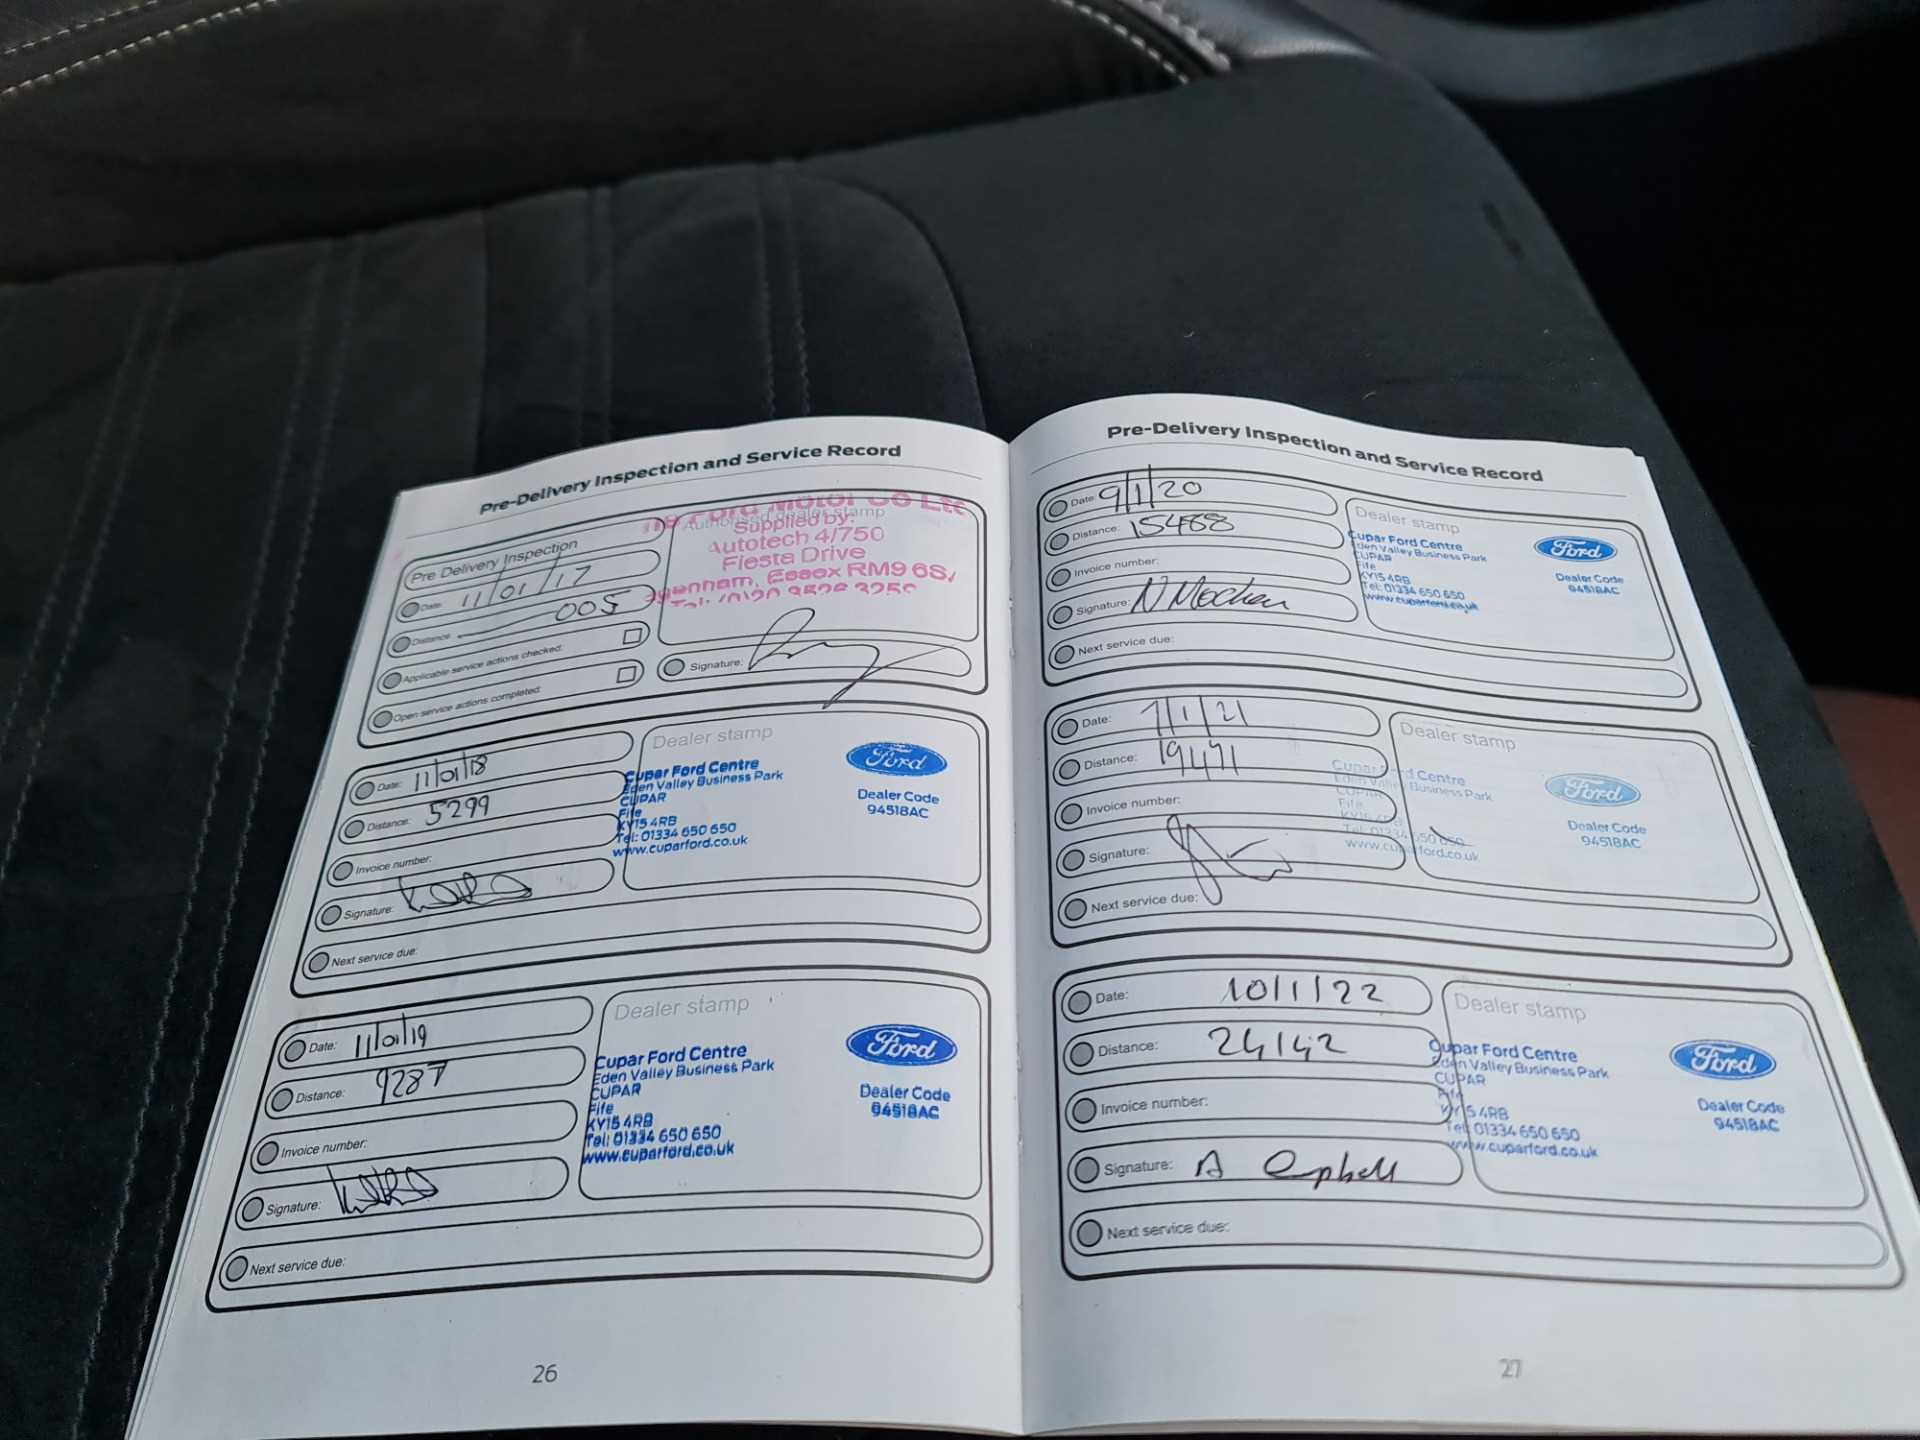 Pre-Delivery Inspection and Service Record
Pre Delivery Inspection
Date: 11/01/17
Distance: 005
Applicable service actions checked:
Open service actions completed:
Authorised dealer stamp
The Ford Motor Co Ltd
Supplied by:
Autotech 4/750
Fiesta Drive
Essex RM9 6S
Signature:
Date: 11/01/18
Distance: 5299
Invoice number:
Signature:
Next service due:
Dealer stamp
Cupar Ford Centre
Eden Valley Business Park
CUPAR
Fife
KY15 4RB
Tel: 01334 650 650
www.cuparford.co.uk
Ford
Dealer Code
94518AC
Date: 11/01/19
Distance: 9287
Invoice number:
Signature:
Next service due:
Dealer stamp
Cupar Ford Centre
Eden Valley Business Park
CUPAR
Fife
KY15 4RB
Tel: 01334 650 650
www.cuparford.co.uk
Ford
Dealer Code
94518AC
26
Pre-Delivery Inspection and Service Record
Date: 9/1/20
Distance: 15468
Invoice number:
Signature:
Next service due:
Dealer stamp
Cupar Ford Centre
Eden Valley Business Park
CUPAR
Fife
KY15 4RB
Tel: 01334 650 650
www.cuparford.co.uk
Ford
Dealer Code
94518AC
Date: 7/1/21
Distance: 19471
Invoice number:
Signature:
Next service due:
Dealer stamp
Cupar Ford Centre
Eden Valley Business Park
CUPAR
Fife
KY15 4RB
Tel: 01334 650 650
www.cuparford.co.uk
Ford
Dealer Code
94518AC
Date: 10/1/22
Distance: 24142
Invoice number:
Signature: A Campbell
Next service due:
Dealer stamp
Cupar Ford Centre
Eden Valley Business Park
CUPAR
Fife
KY15 4RB
Tel: 01334 650 650
www.cuparford.co.uk
Ford
Dealer Code
94518AC
27